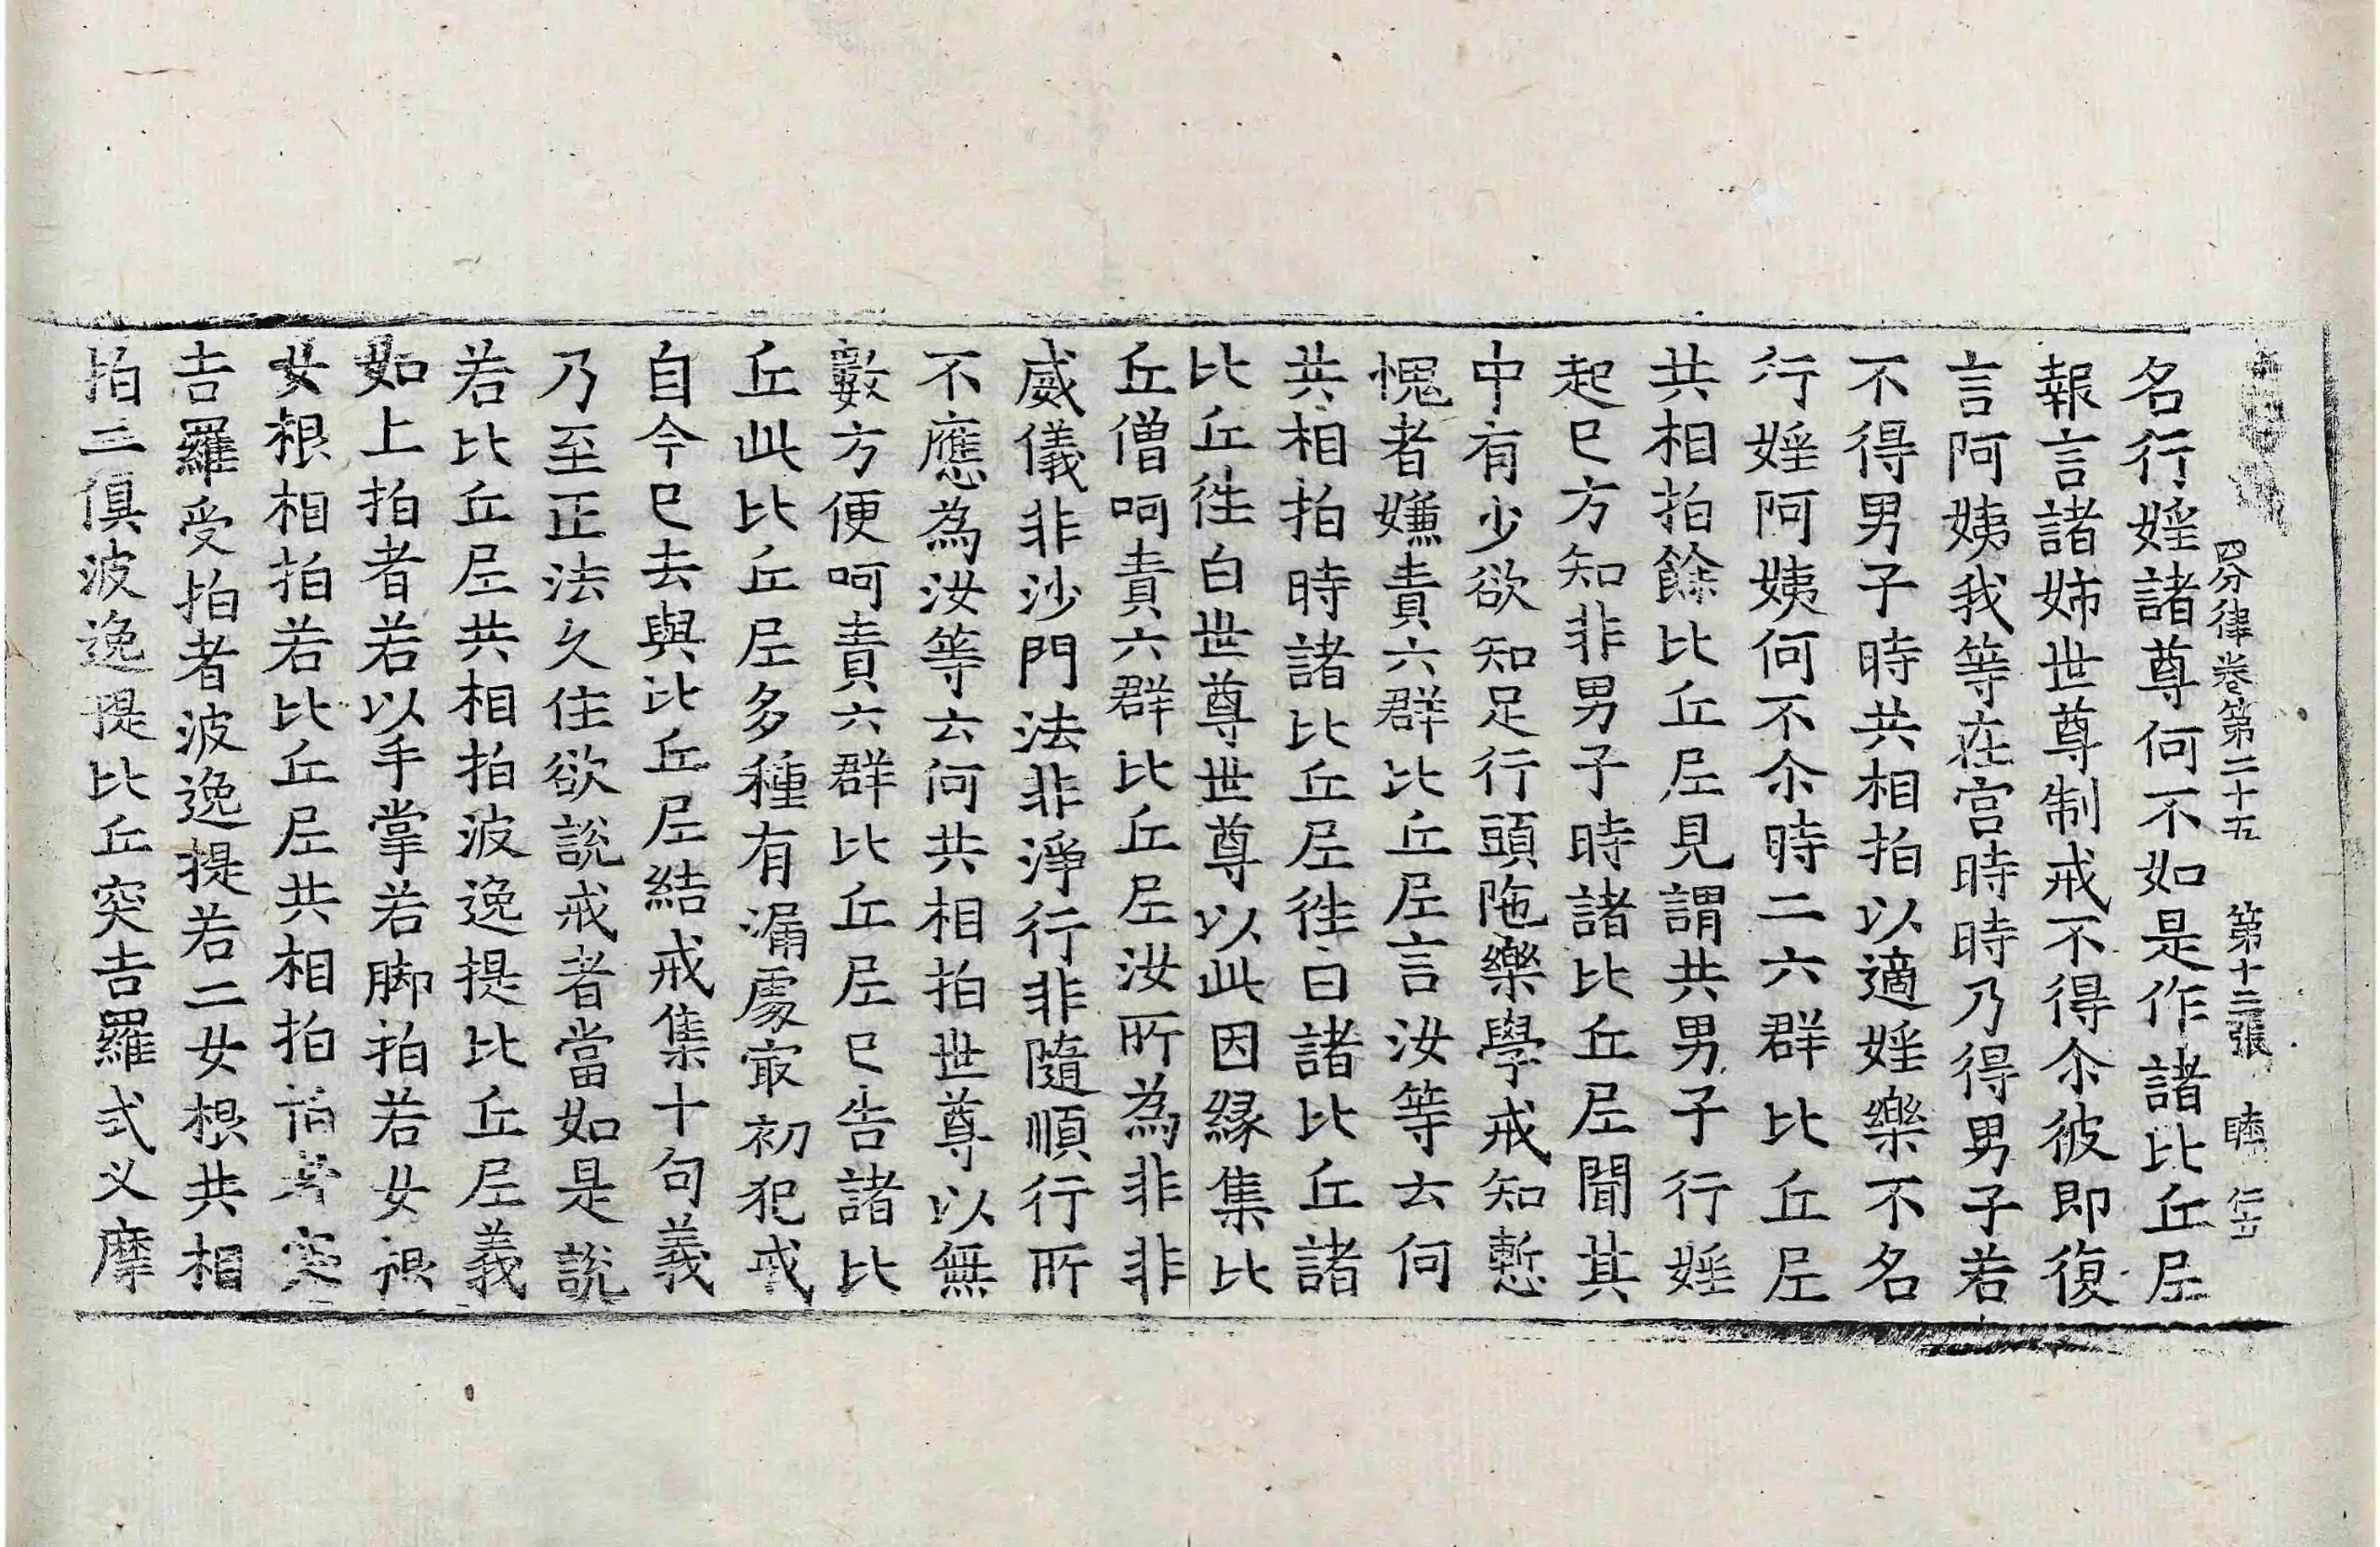 四分律卷第二十五 第十二張 睦 仁士
名行婬諸尊何不如是作諸比丘𡰱
報言諸姊世尊制戒不得尒彼即復
言阿姨我等在宮時時乃得男子若
不得男子時共相拍以適婬樂不名
行婬阿姨何不尒時二六群比丘𡰱
共相拍餘比丘𡰱見謂共男子行婬
起已方知非男子時諸比丘𡰱聞其
中有少欲知足行頭陁樂學戒知慙
愧者嫌責六群比丘𡰱言汝等云何
共相拍時諸比丘𡰱徃白諸比丘諸
比丘徃白世尊世尊以此因縁集比
丘僧呵責六群比丘𡰱汝所為非非
威儀非沙門法非淨行非隨順行所
不應為汝等云何共相拍世尊以無
數方便呵責六群比丘𡰱已告諸比
丘此比丘𡰱多種有漏處㝡初犯戒
自今已去與比丘𡰱結戒集十句義
乃至正法久住欲說戒者當如是說
若比丘𡰱共相拍波逸提比丘𡰱義
如上拍者若以手掌若脚拍若女根
女根相拍若比丘𡰱共相拍拍者突
吉羅受拍者波逸提若二女根共相
拍二俱波逸提比丘突吉羅式叉摩